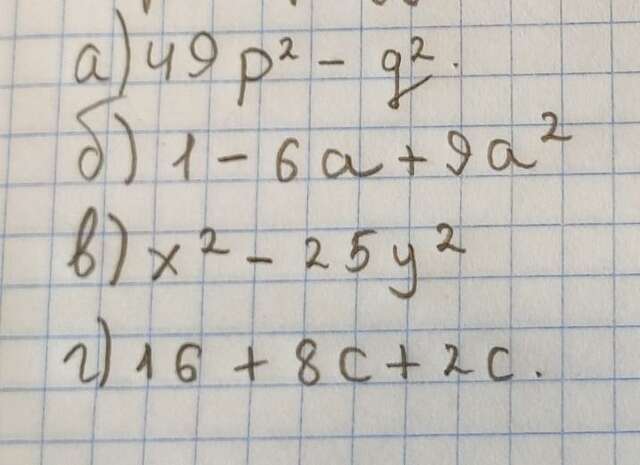 а) 49p² - q².
б) 1 - 6a + 9a²
в) x² - 25y²
г) 16 + 8c + 2c.